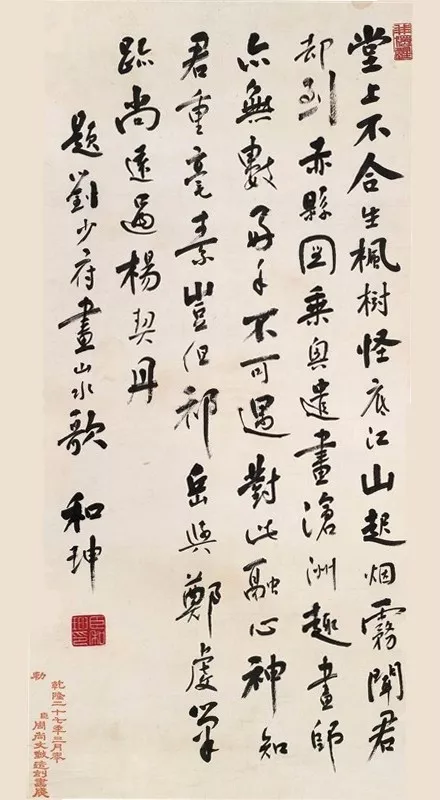 堂上不合生楓樹怪底江山起烟霧聞君
却到赤縣図乘興遣畫滄洲趣畫師
亦無數好手不可遇對此融心神知
君重毫素豈但祁岳與鄭虔筆
跡尚遠過楊契丹
題劉少府畫山水歌 和珅
乾隆二十七年三月奉
勅 臣周尚文